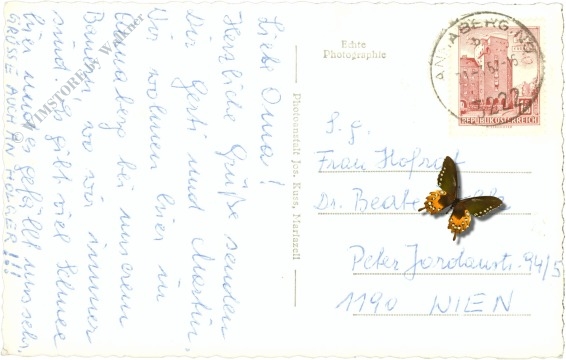 Liebe Oma!
Herzliche Grüße senden
Dir Gerti und Martin,
Wir wohnen hier in
Annaberg bei unserem
Bauern wo wir immer
sind. Es gibt viel Schnee
hier und es gefällt uns sehr.
GRÜSSE AUCH AN HOLGER!!!
Echte
Photographie
Photoanstalt Jos. Kuss, Mariazell
ANNABERG, NÖ
3222
REPUBLIK ÖSTERREICH
S. g.
Frau Hofrat
Dr. Beate
Peter Jordanstr. 94/5
1190 WIEN